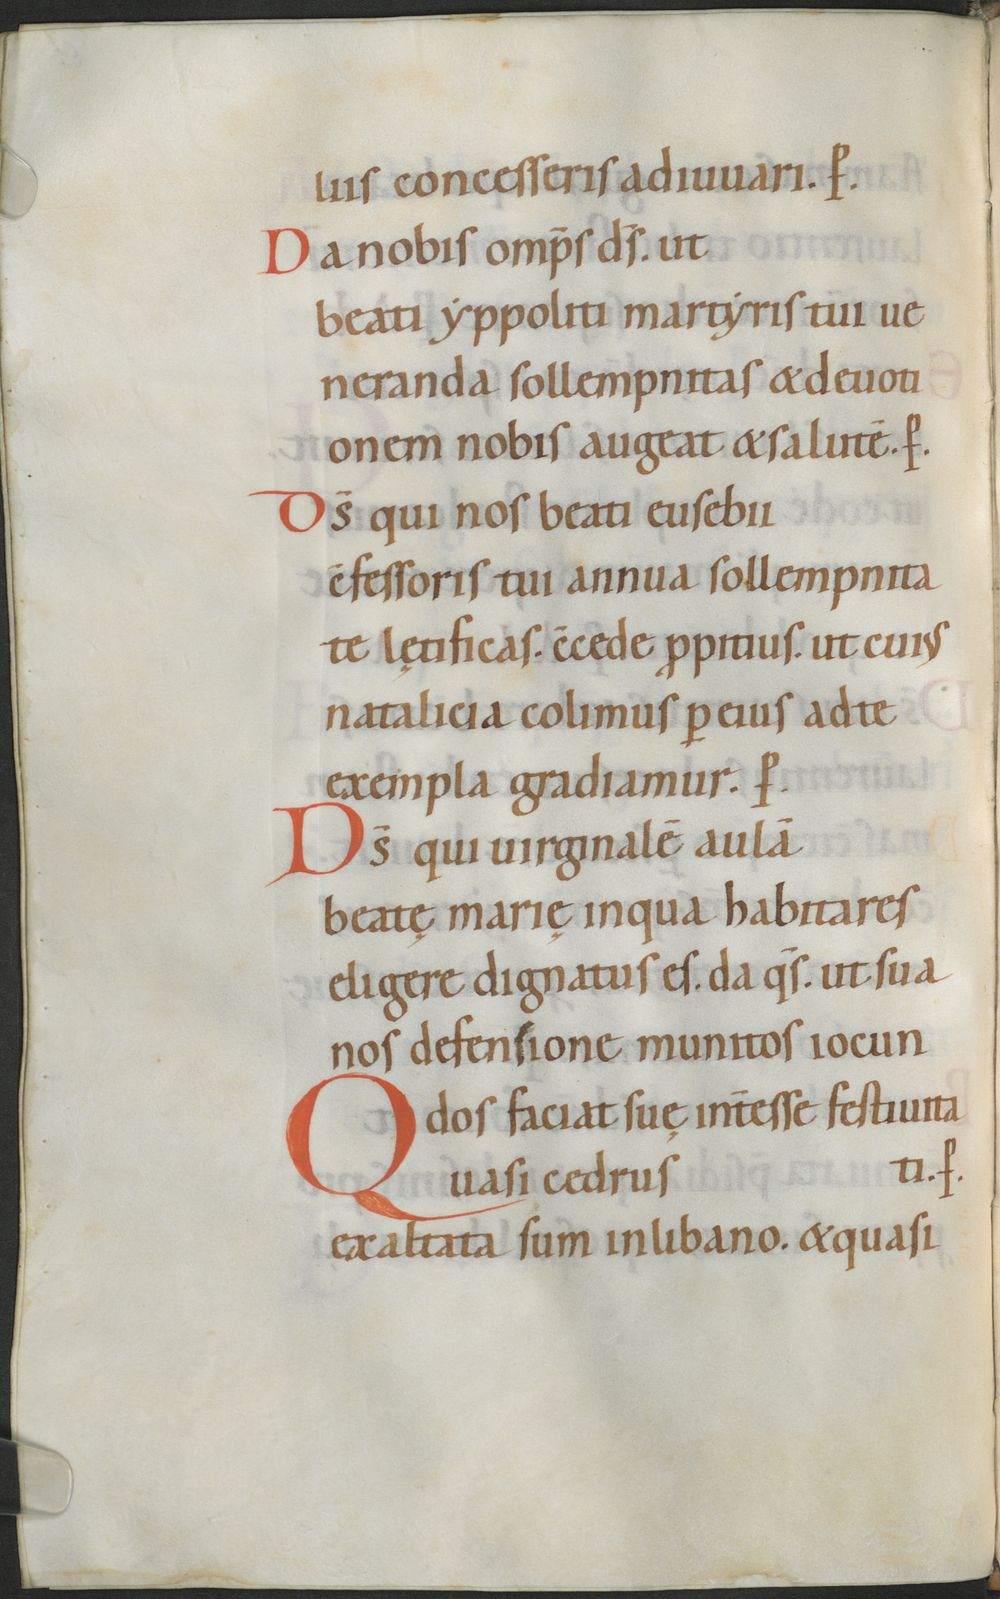 uis concesseris adiuuari. ꝑ.
Da nobis omp̄s ds̄. ut
beati ẏppoliti martẏris tui ue
neranda sollempnitas &deuoti
onem nobis augeat &salutē. ꝑ.
Ds̄ qui nos beati eusebii
c̄fessoris tui annua sollempnita
te lętificas. c̄cede ꝓpitius. ut cuiꝰ
natalicia colimus ꝑ eius ad te
exempla gradiamur. ꝑ.
Ds̄ qui uirginalē aulā
beatę marię inqua habitares
eligere dignatus es. da qs̄. ut sua
nos defensione munitos iocun
dos faciat suę int̄esse festiuita
Quasi cedrus ti. ꝑ.
exaltata sum inlibano. &quasi